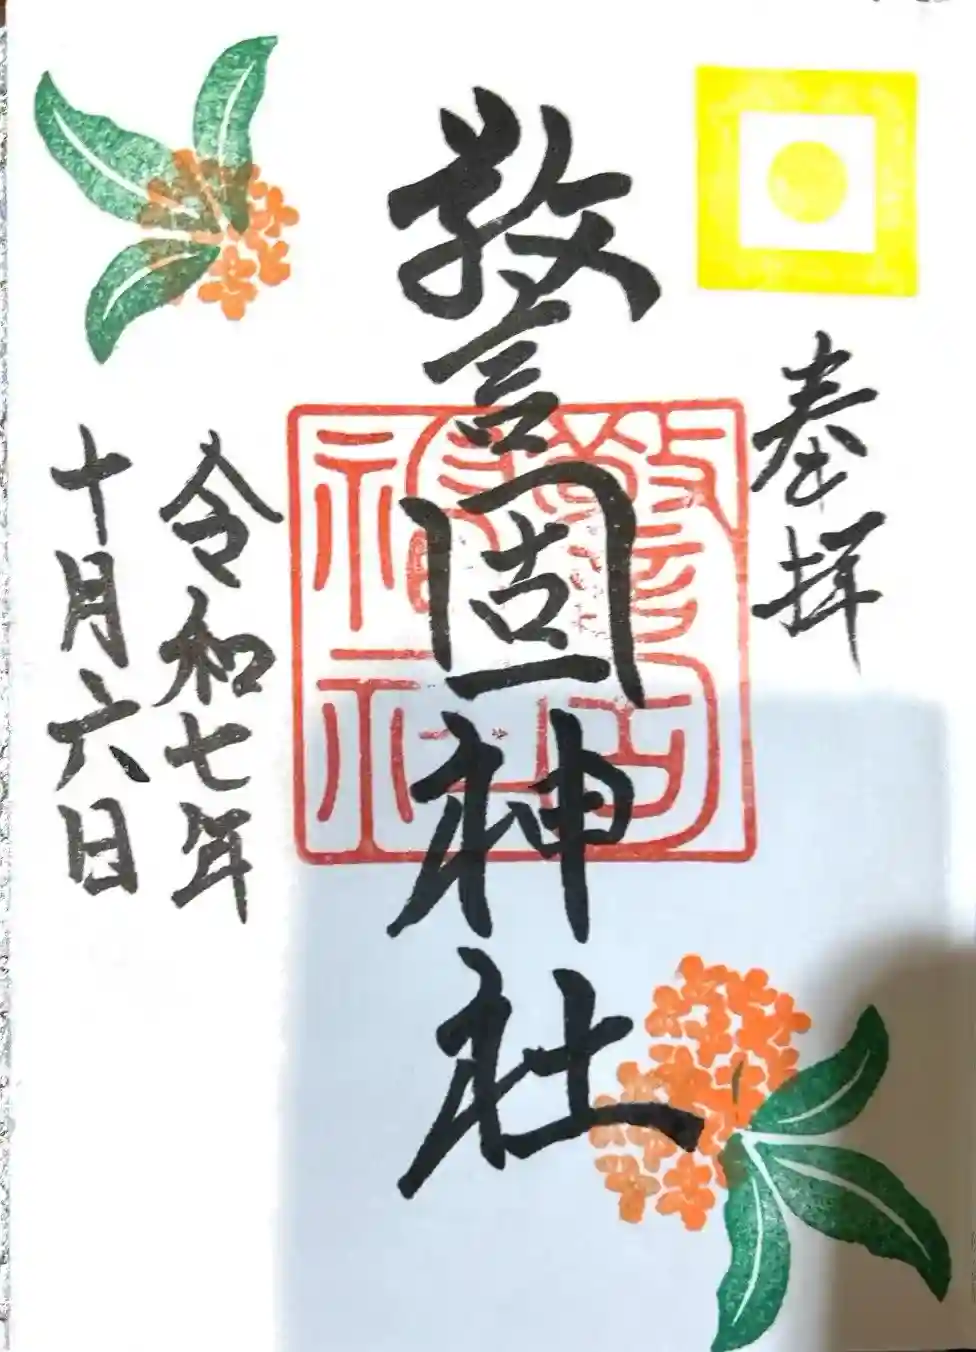 奉拝
警固神社
警固
神社
令和七年
十月六日